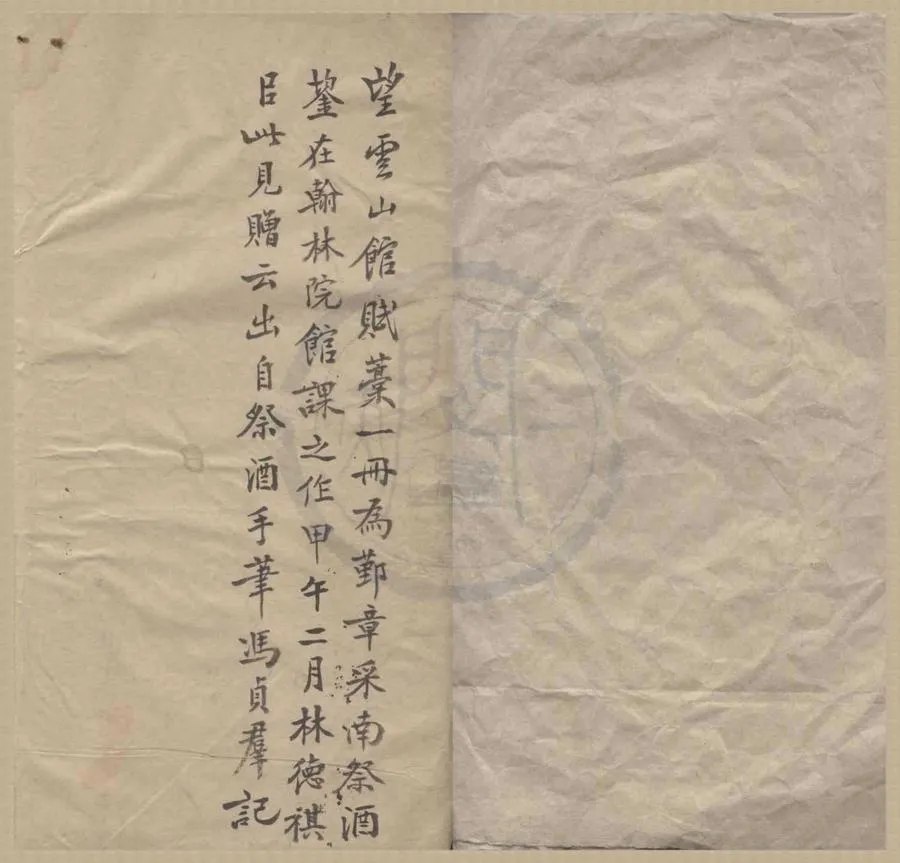 望雲山館賦藁一冊為鄞章采南祭酒
鋆在翰林院館課之作甲午二月林德祺
㠯此見贈云出自祭酒手筆馮貞羣記